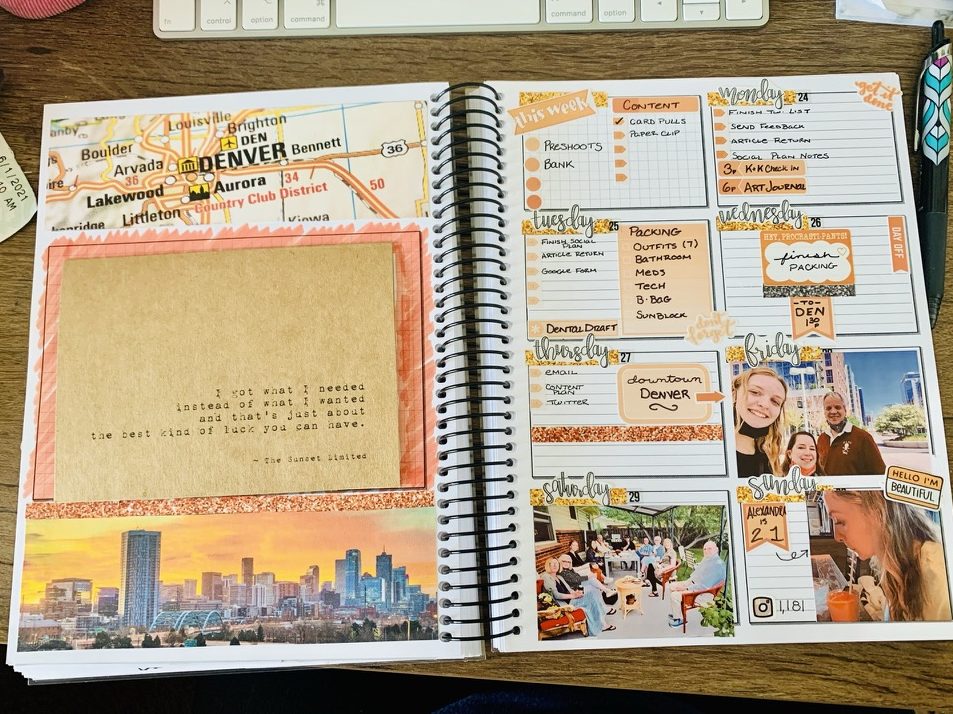 fn
control
option
command
command
option
6/1/2021
AM
Louisville
Brighton
DEN
Boulder
Arvada
DENVER
Bennett
36
36
Lakewood
Aurora
34
Country Club District
50
Littleton
Kiowa
I got what I needed
instead of what I wanted
and that's just about
the best kind of luck you can have.
~ The Sunset Limited
this week
PRESHOOTS
BANK
CONTENT
CARD PULLS
PAPER CLIP
monday 24
get it done
FINISH TW LIST
SEND FEEDBACK
ARTICLE RETURN
SOCIAL PLAN NOTES
3p K+K CHECK IN
6p ART JOURNAL
tuesday 25
FINISH SOCIAL
PLAN
ARTICLE RETURN
GOOGLE FORM
DENTAL DRAFT
PACKING
OUTFITS (7)
BATHROOM
MEDS
TECH
B. BAG
SUNBLOCK
don't forget
wednesday 26
HEY, PROCRASTI-PANTS!
finish
PACKING
DAY OFF
-TO-
DEN
1:30
P
thursday 27
EMAIL
CONTENT
PLAN
TWITTER
downtown
DENVER
friday
saturday 29
sunday
HELLO I'M
BEAUTIFUL
ALEXANDRA
IS
21
1,181